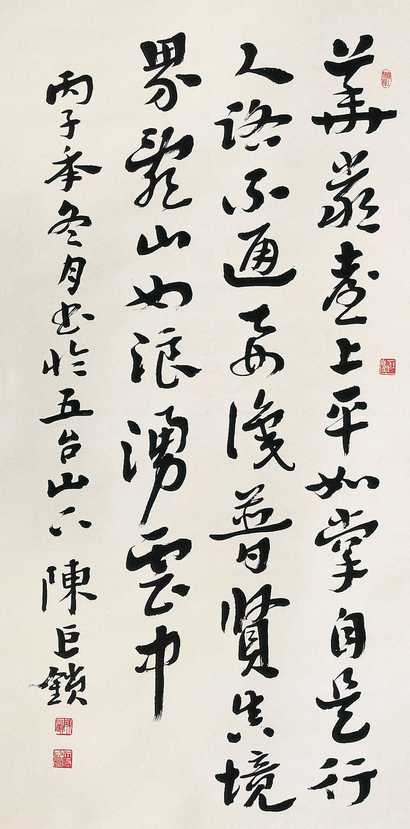 華嚴臺上平如掌自是行
人路不通要識普賢真境
界亂山如浪湧雲中
丙子秊冬月書於五台山下陳巨鎖